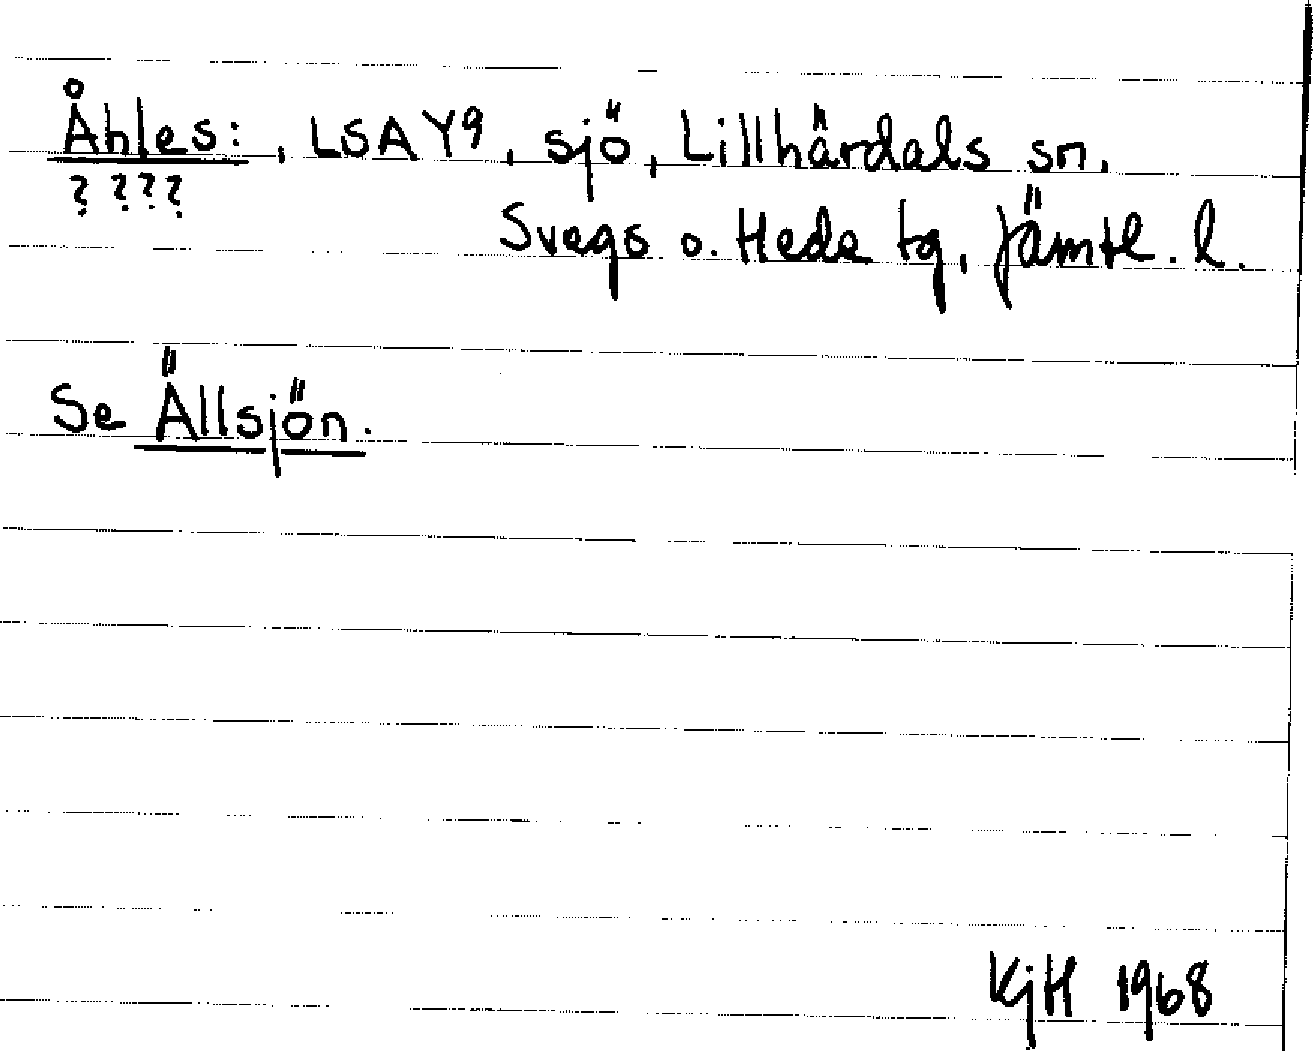 Åhles:, LSA Y9, sjö, Lillhärdals sn.
? ???
Svegs o. Hede tg, Jämtl. l.
Se Ällsjön.
KjH 1968